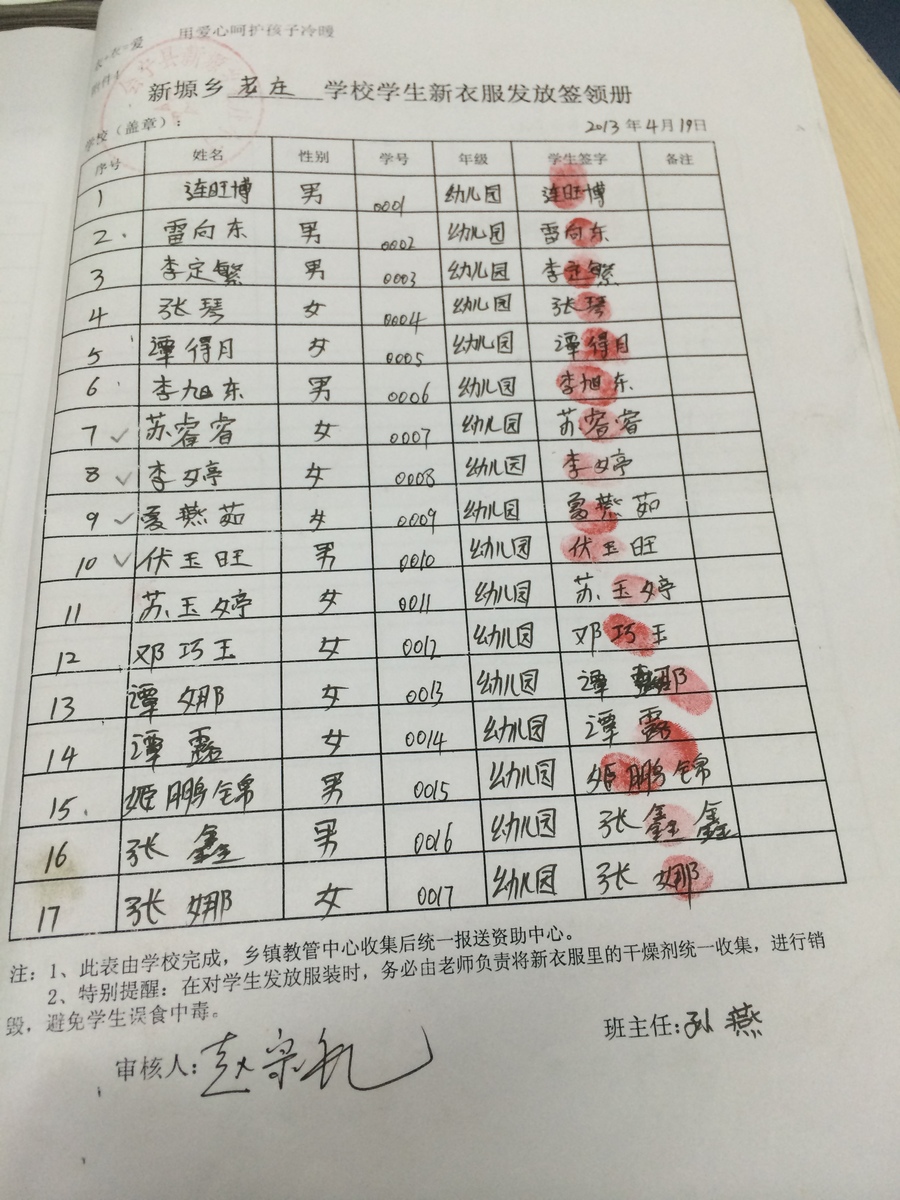 衣+衣=爱 用爱心呵护孩子冷暖
附件1
新塬乡 老庄 学校学生新衣服发放签领册
学校（盖章）： 2013年4月19日
序号 姓名 性别 学号 年级 学生签字 备注
1 连旺博 男 0001 幼儿园 连旺博
2 雷向东 男 0002 幼儿园 雷向东
3 李定繁 男 0003 幼儿园 李定繁
4 张琴 女 0004 幼儿园 张琴
5 谭得月 女 0005 幼儿园 谭得月
6 李旭东 男 0006 幼儿园 李旭东
7 苏睿睿 女 0007 幼儿园 苏睿睿
8 李婷 女 0008 幼儿园 李婷
9 燕茹 女 0009 幼儿园 燕茹
10 伏玉旺 男 0010 幼儿园 伏玉旺
11 苏玉婷 女 0011 幼儿园 苏玉婷
12 邓巧玉 女 0012 幼儿园 邓巧玉
13 谭娜 女 0013 幼儿园 谭娜
14 谭露 女 0014 幼儿园 谭露
15 姬鹏锦 男 0015 幼儿园 姬鹏锦
16 张鑫 男 0016 幼儿园 张鑫鑫
17 张娜 女 0017 幼儿园 张娜
注：1、此表由学校完成，乡镇教管中心收集后统一报送资助中心。
2、特别提醒：在对学生发放服装时，务必由老师负责将新衣服里的干燥剂统一收集，进行销
毁，避免学生误食中毒。
班主任：孙燕
审核人：赵宗礼